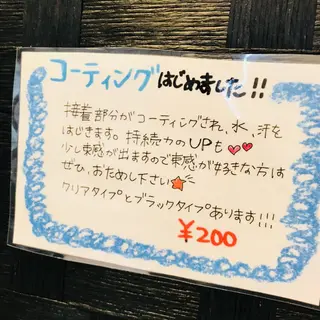 コーティングはじめました!!
接着部分がコーティングされ、水、汗を
はじきます。持続力のUPも♥♥
少し束感が出ますので束感が好きな方は
ぜひ、おためし下さい★
クリアタイプとブラックタイプあります!!!
¥200